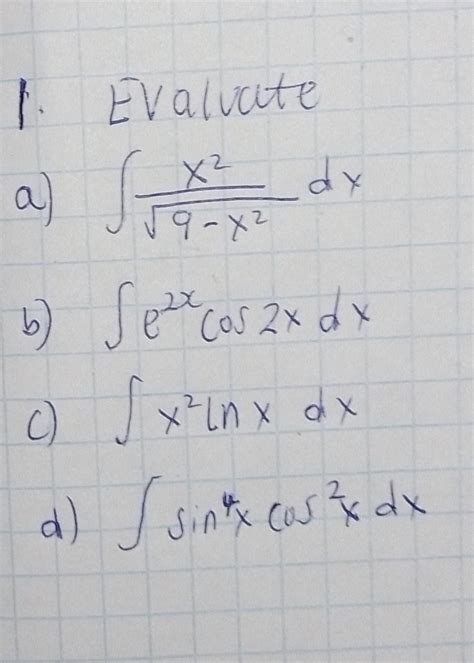 1. Evaluate
a) ∫ x²/√(9-x²) dx
b) ∫ e²ˣ cos 2x dx
c) ∫ x² ln x dx
d) ∫ sin⁴x cos²x dx